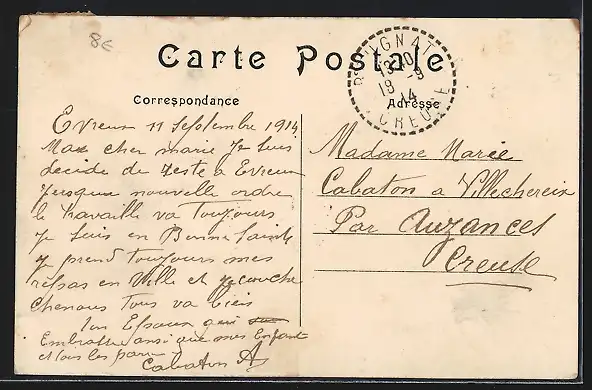 8€
Carte Postale
Correspondance
Adresse
CREUSE
13-9
14
Evreux 11 Septembre 1914
Ma cher marie Je suis
decide de reste a Evreux
jusqua nouvelle ordre
le travaille va Toujours
Je suis en Bonne Santé
Je prend toujours mes
repas en Ville et je couche
chenous Tous va bien
Ton Epoux qui
Embrasse ansi que mes Enfant
et tous les parent
Cabaton A
Madame Marie
Cabaton a Villecherein
Par Auzances
Creuse